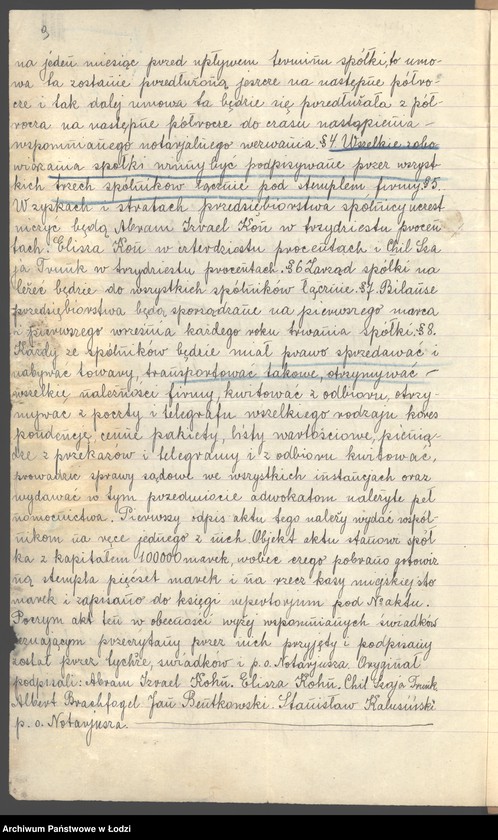 9
na jeden miesiąc przed upływem terminu spółki, to umo-
wa ta zostanie przedłużoną jeszcze na następne półro-
cze i tak dalej umowa ta będzie się przedłużała z pół-
rocza na następne półrocze do czasu nastąpienia -
wspomnianego notarjalnego wezwania. § 4 Wszelkie zobo
wiązania spółki winny być podpisywane przez wszyst-
kich trzech spólników łącznie pod stemplem firmy. § 5.
W zyskach i stratach przedsiębiorstwa spólnicy uczest
niczyć będą Abram Izrael Kon w trzydziestu procen
tach. Elisza Kon w czterdziestu procentach i Chil Sza
ja Trunk w trzydziestu procentach. § 6 Zarząd spółki na
leżeć będzie do wszystkich spólników łącznie. § 7. Bilanse
przedsiębiorstwa będą sporządzane na pierwszego marca
i pierwszego września każdego roku trwania spółki. § 8.
Każdy ze spólników będzie miał prawo sprzedawać i
nabywać towary, transportować takowe, otrzymywać -
wszelkie należności firmy, kwitować z odbioru, otrzy-
mywać z poczty i telegrafu wszelkiego rodzaju kores
pondencję, cenne pakiety, listy wartościowe, pienią-
dze z przekazów i telegramy i z odbioru kwitować,
prowadzić sprawy sądowe we wszystkich instancjach oraz
wydawać w tym przedmiocie adwokatom należyte peł
nomocnictwa. Pierwszy odpis aktu tego należy wydać wspól-
nikom na ręce jednego z nich. Objekt aktu stanowi spół
ka z kapitałem 100000 marek, wobec czego pobrano gotowiz
ną stempla pięćset marek i na rzecz kasy miejskiej sto
marek i zapisano do księgi repertorjum pod № aktu.
Poczym akt ten w obecności wyżej wspomnianych świadków
zeznającym przeczytany przez nich przyjęty i podpisany
został przez tychże, świadków i p.o. Notarjusza. Oryginał
podpisali: Abram Izrael Kohn. Elisza Kohn. Chil Szaja Trunk
Albert Brachfogel Jan Bentkowski. Stanisław Kalusiński
p. o. Notarjusza.
Archiwum Państwowe w Łodzi